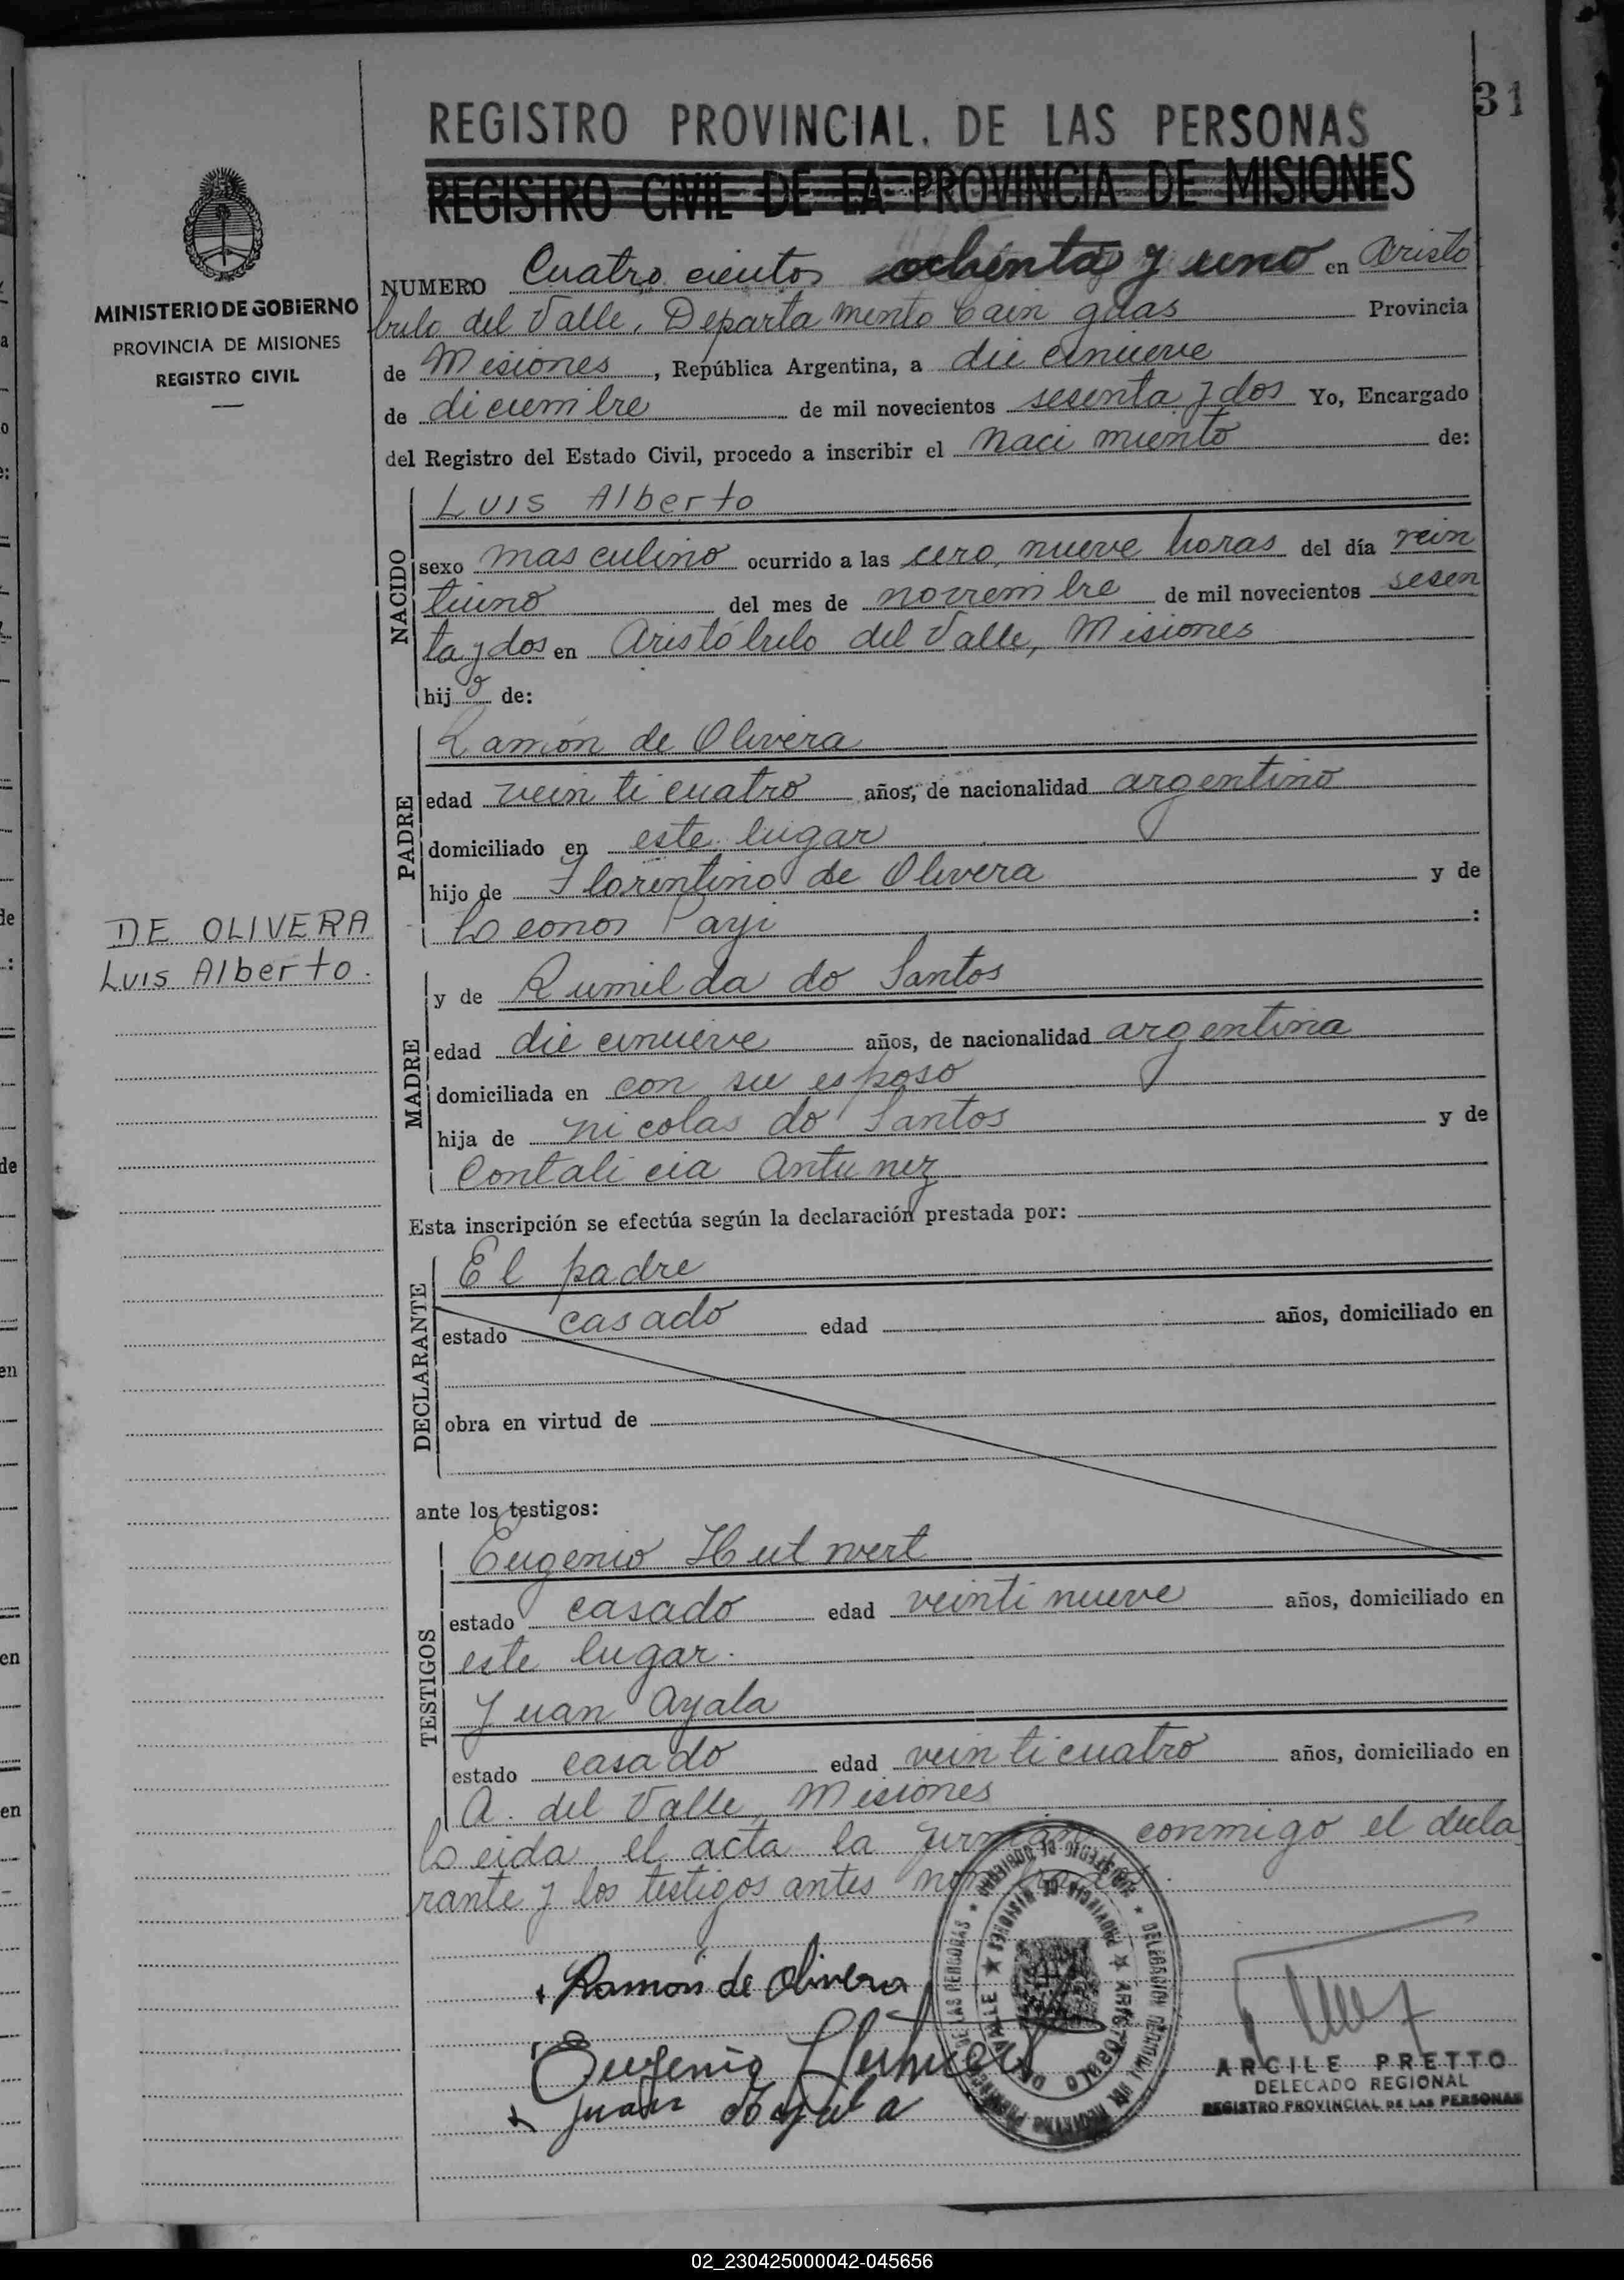 31
REGISTRO PROVINCIAL. DE LAS PERSONAS
REGISTRO CIVIL DE LA PROVINCIA DE MISIONES
MINISTERIO DE GOBIERNO
PROVINCIA DE MISIONES
REGISTRO CIVIL
NUMERO Cuatro cientos ochenta y uno en Aristo
bulo del Valle, Departamento Cainguas Provincia
de Misiones, República Argentina, a diecinueve
de diciembre de mil novecientos sesenta y dos Yo, Encargado
del Registro del Estado Civil, procedo a inscribir el nacimiento de:
NACIDO
Luis Alberto
sexo masculino ocurrido a las cero, nueve horas del día vein
tiuno del mes de noviembre de mil novecientos sesen
ta y dos en Aristóbulo del Valle, Misiones
hijo de:
PADRE
Ramón de Olivera
edad veinticuatro años, de nacionalidad argentino
domiciliado en este lugar
hijo de Florintino de Olivera y de
Leonor Payi :
DE OLIVERA
Luis Alberto.
MADRE
y de Rumilda do Santos
edad diecinueve años, de nacionalidad argentina
domiciliada en con su esposo
hija de Nicolas do Santos y de
Contalicia Antunez
Esta inscripción se efectúa según la declaración prestada por:
DECLARANTE
El padre
estado casado edad años, domiciliado en
obra en virtud de
ante los testigos:
TESTIGOS
Eugenio
estado casado edad veintinueve años, domiciliado en
este lugar.
Juan Ayala
estado casado edad veinticuatro años, domiciliado en
A. del Valle, Misiones
Leida el acta la firman conmigo el decla
rante y los testigos antes nombrados.
Ramon de Olivera
Eugenio
Juan Ayala
ARGILE PRETTO
DELEGADO REGIONAL
REGISTRO PROVINCIAL DE LAS PERSONAS
02_230425000042-045656